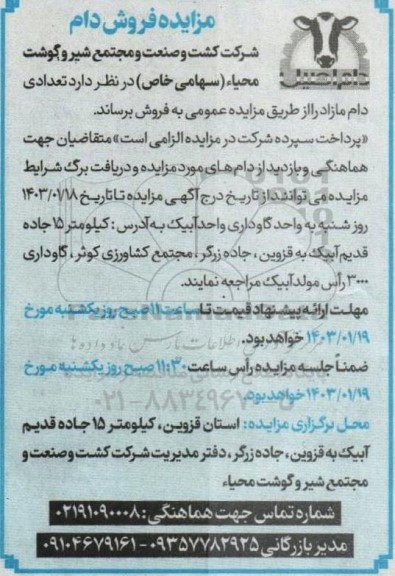 مزایده فروش دام
شرکت کشت و صنعت و مجتمع شیر و گوشت
محیاء (سهامی خاص) در نظر دارد تعدادی
دام مازاد را از طریق مزایده عمومی به فروش برساند.
«پرداخت سپرده شرکت در مزایده الزامی است» متقاضیان جهت
هماهنگی و بازدید از دام های مورد مزایده و دریافت برگ شرایط
مزایده می توانند از تاریخ درج آگهی مزایده تا تاریخ ۱۴۰۳/۰۱/۱۸
روز شنبه به واحد گاوداری واحد آبیک به آدرس: کیلومتر ۱۵ جاده
قدیم آبیک به قزوین، جاده زرگر، مجتمع کشاورزی کوثر، گاوداری
۳۰۰۰ رأس مولد آبیک مراجعه نمایند.
مهلت ارائه پیشنهاد قیمت تا ساعت ۱۱ صبح روز یکشنبه مورخ
۱۴۰۳/۰۱/۱۹ خواهد بود.
ضمناً جلسه مزایده رأس ساعت ۱۱:۳۰ صبح روز یکشنبه مورخ
۱۴۰۳/۰۱/۱۹ خواهد بود.
۰۲۱-۸۸۳۴۹۶۷۰
محل برگزاری مزایده: استان قزوین، کیلومتر ۱۵ جاده قدیم
آبیک به قزوین، جاده زرگر، دفتر مدیریت شرکت کشت و صنعت و
مجتمع شیر و گوشت محیاء
شماره تماس جهت هماهنگی: ۰۲۱۹۱۰۹۰۰۰۸
مدیر بازرگانی ۰۹۳۵۷۷۸۲۹۲۵-۰۹۱۰۴۶۷۹۱۶۱